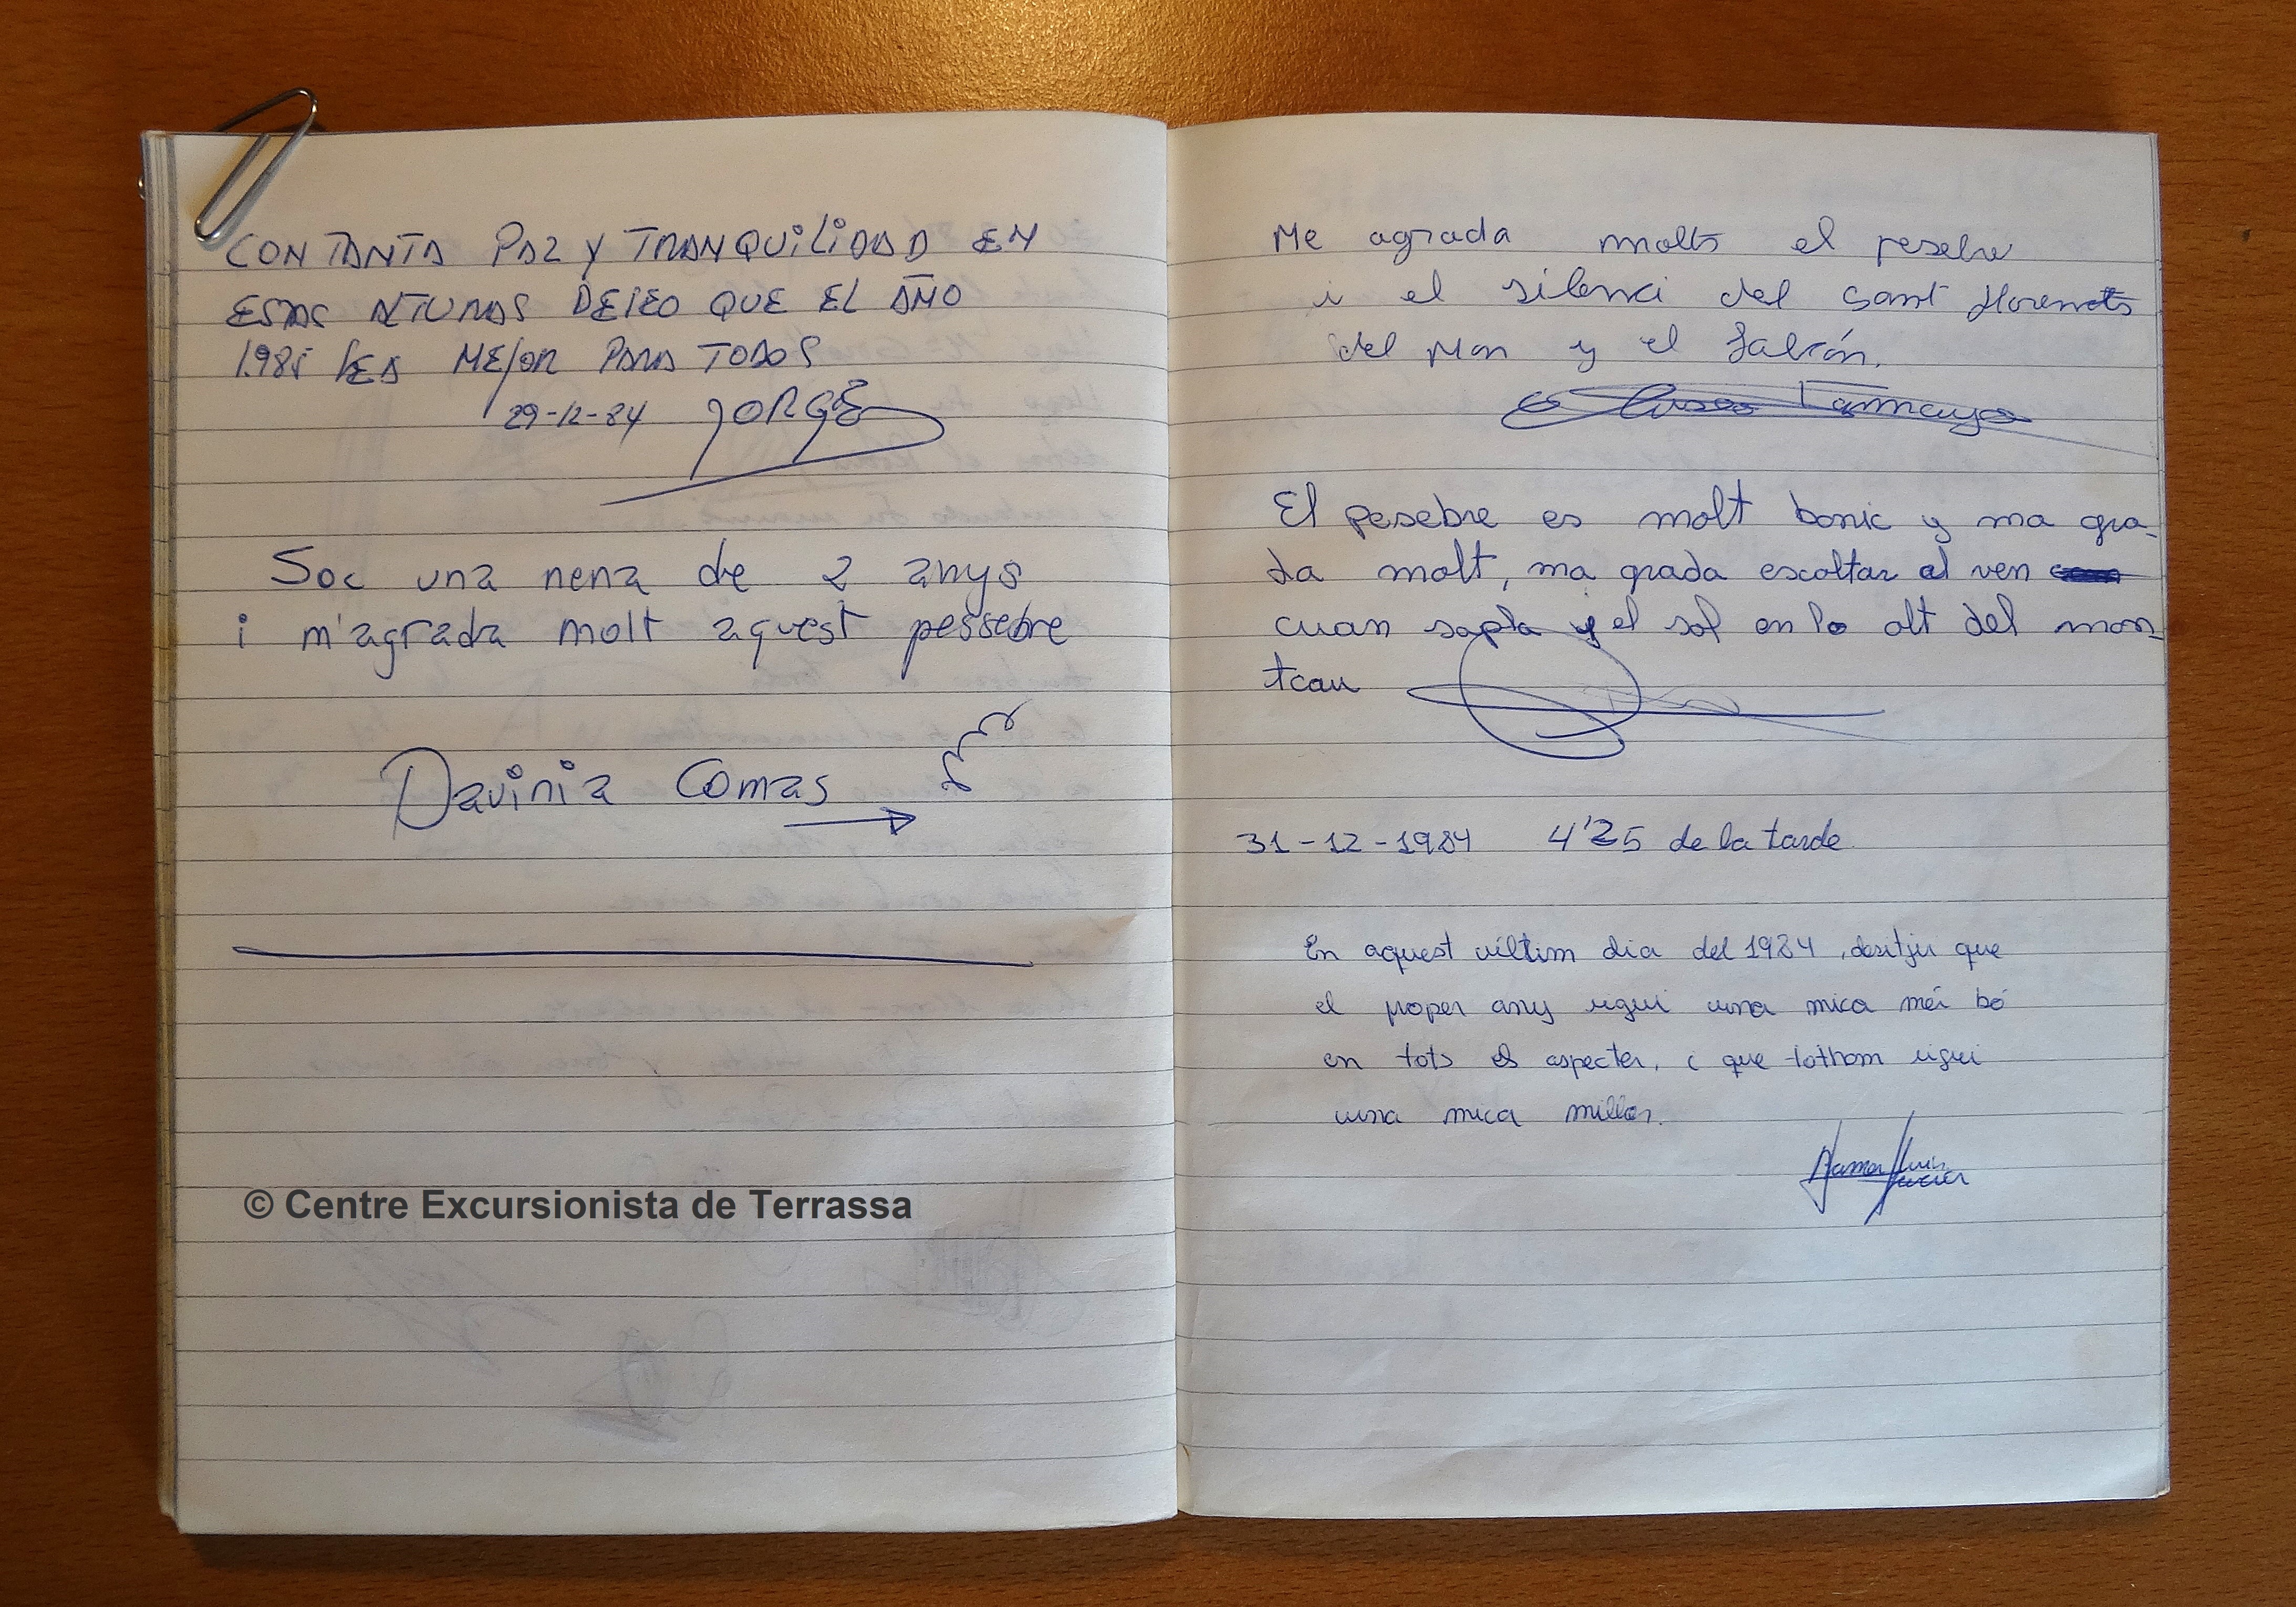 CON TANTA PAZ Y TRANQUILIDAD EN
ESTAS ALTURAS DESEO QUE EL AÑO
1.985 SEA MEJOR PARA TODOS
29-12-84 JORGE
Soc una nena de 2 anys
i m'agrada molt aquest pessebre
Davinia Comas
© Centre Excursionista de Terrassa
Me agrada molts el pesebre
i el silenci del Sant Llorenets
del Mon y el
Tamayo
El pesebre es molt bonic y ma gra-
da molt, ma grada escoltar al ven
cuan sopla y el sol en lo alt del mon-
tcau
31-12-1984 4'25 de la tarde
En aquest últim dia del 1984, desitju que
el proper any sigui una mica més bó
en tots els aspectes, i que tothom sigui
una mica millor.